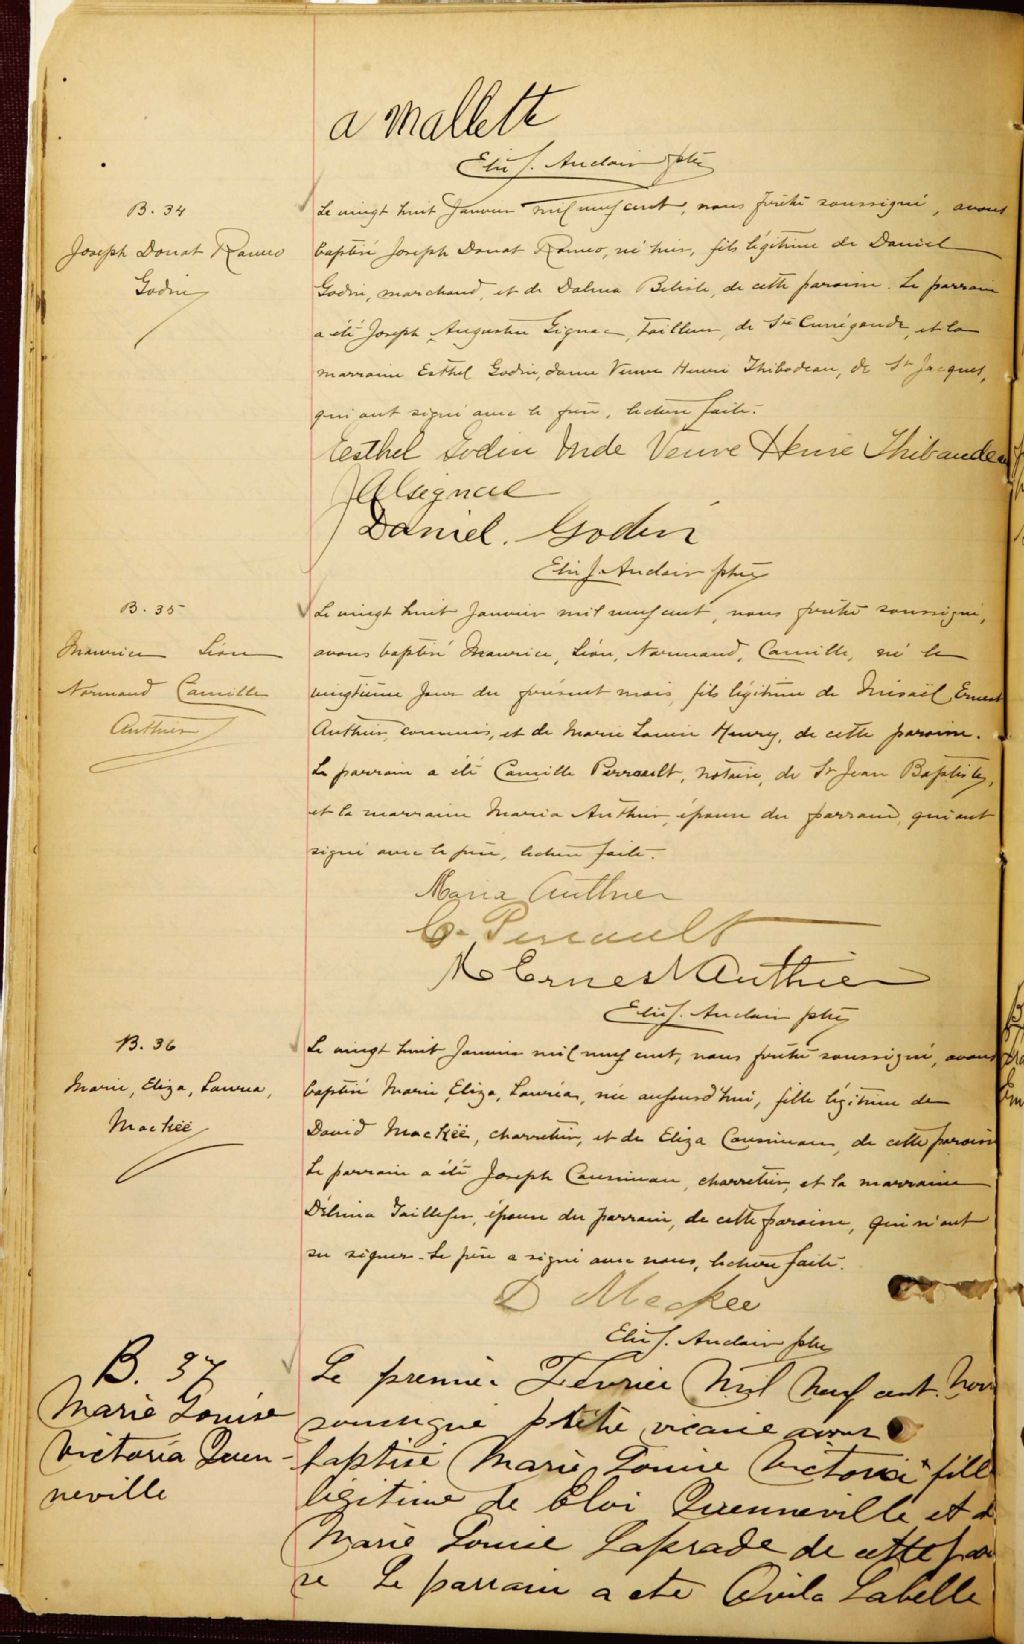 a Mallette
Elie J. Auclair ptre
B. 34
Joseph Donat Romeo
Godin
Le vingt huit Janvier mil neuf cent, nous prêtre soussigné, avons
baptisé Joseph Donat Romeo, né hier, fils légitime de Daniel
Godin, marchand, et de Dalma Belisle, de cette paroisse. Le parrain
a été Joseph Augustin Gignac, tailleur, de Ste Cunégonde, et la
marraine Esthel Godin, dame Veuve Henri Thibodeau, de St Jacques,
qui ont signé avec le père, lecture faite.
Esthel Godin Mde Veuve Henrie Thibaudeau
Daniel. Godin
Elie J. Auclair ptre
B. 35
Maurice Léon
Normand Camille
Authier
Le vingt huit Janvier mil neuf cent, nous prêtre soussigné,
avons baptisé Maurice, Léon, Normand, Camille, né le
vingtième jour du présent mois, fils légitime de Misaël Ernest
Authier, commis, et de Marie Louise Henry, de cette paroisse.
Le parrain a été Camille Perrault, notaire, de St Jean Baptiste,
et la marraine Maria Authier, épouse du parrain, qui ont
signé avec le père, lecture faite.
Maria Authier
C. Perrault
M Ernest Authier
Elie J. Auclair ptre
B. 36
Marie, Eliza, Laurea,
Mackëë
Le vingt huit Janvier mil neuf cent, nous prêtre soussigné, avons
baptisé Marie, Eliza, Lauréa, née aujourd'hui, fille légitime de
David Mackëë, charretier, et de Eliza Cousineau, de cette paroisse
Le parrain a été Joseph Cousineau, charretier, et la marraine
Délima Taillefer, épouse du parrain, de cette paroisse, qui n'ont
su signer. Le père a signé avec nous, lecture faite.
D Mackee
Elie J. Auclair ptre
B. 37
Marie Louise
Victoria Quen-
neville
Le premier Février Mil Neuf cent. Nous
soussigné prêtre vicaire avons
baptisé Marie Louise Victoria fille
légitime de Eloi Quenneville et d
Marie Louise Laprade de cette parois
se Le parrain a été Avila Labelle